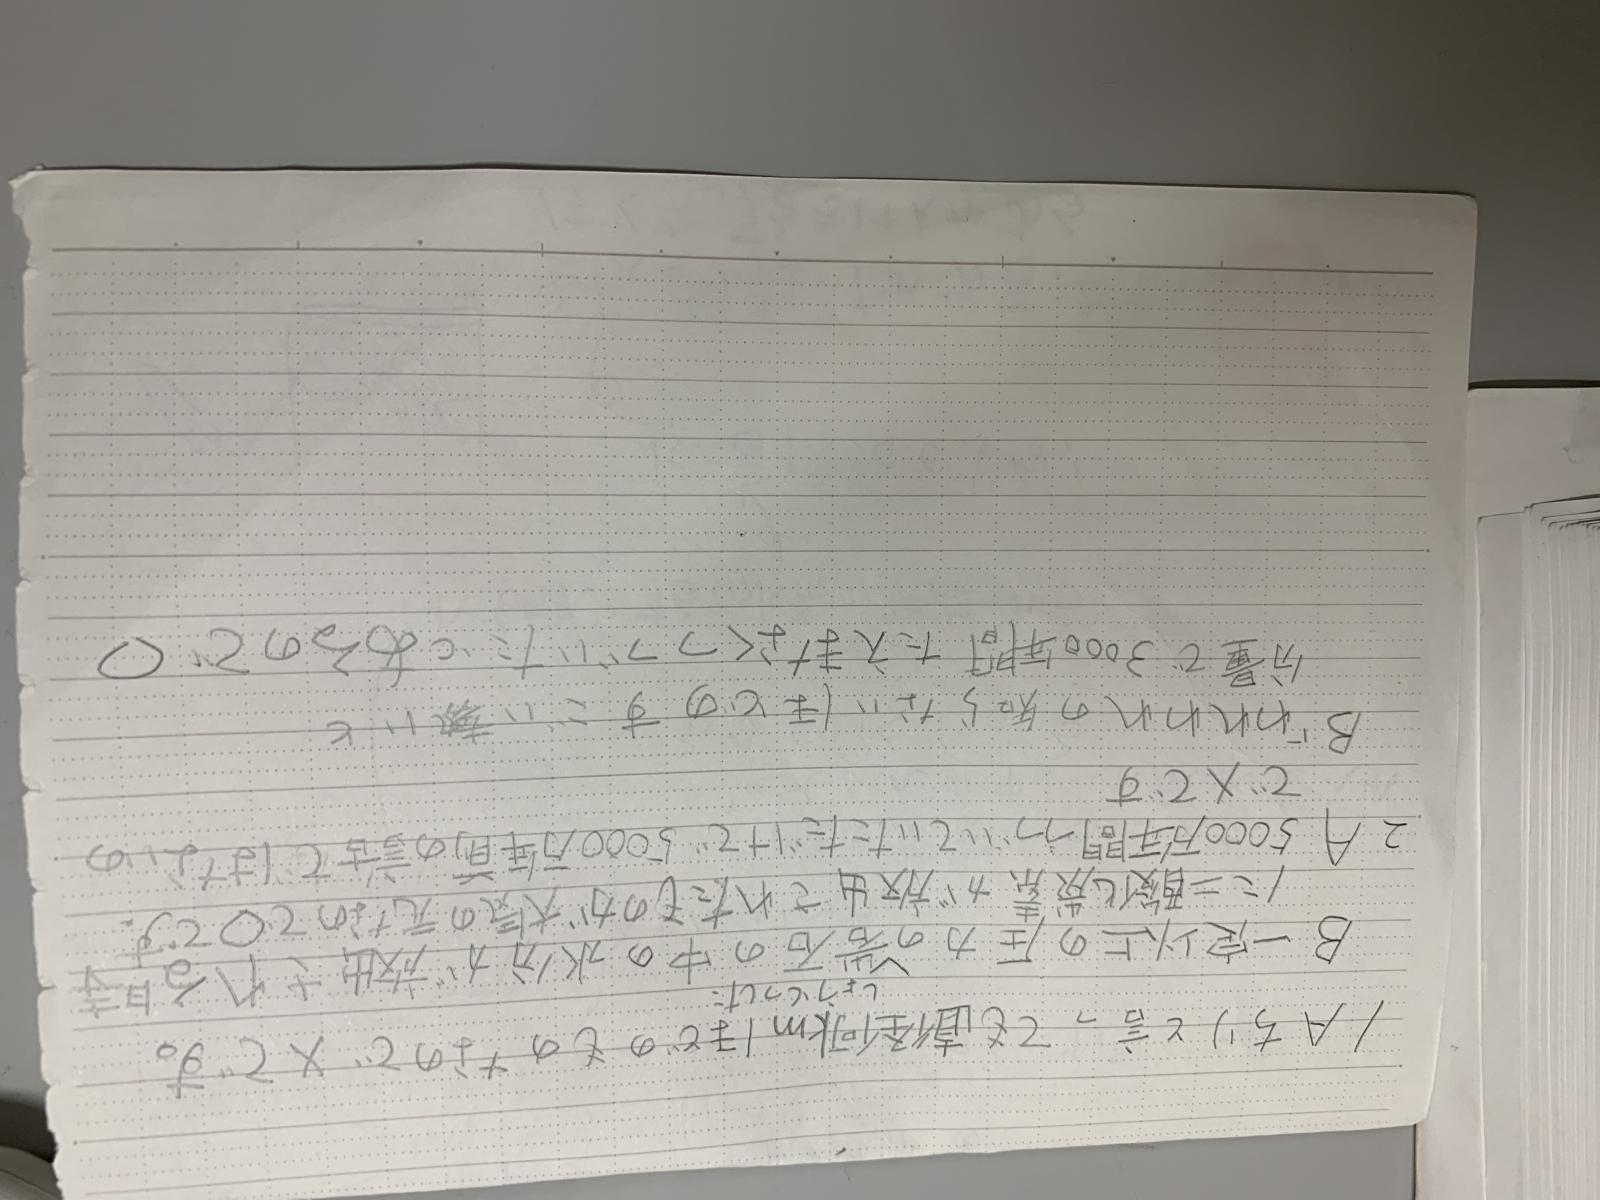 1 A ちりと言っても直径何kmほどのものなので×です。
しょうとつした
B 一定以上の圧力の岩石の中の水分が放出される時
に二酸化炭素が放出されたものが大気の元なので○です。
2 A 5000万年間つづいていただけで5000万年前の言舌ではないの
で×です
B われわれの知らないほどのすごい
分量で3000年間たえまなくつづいたとあるので○